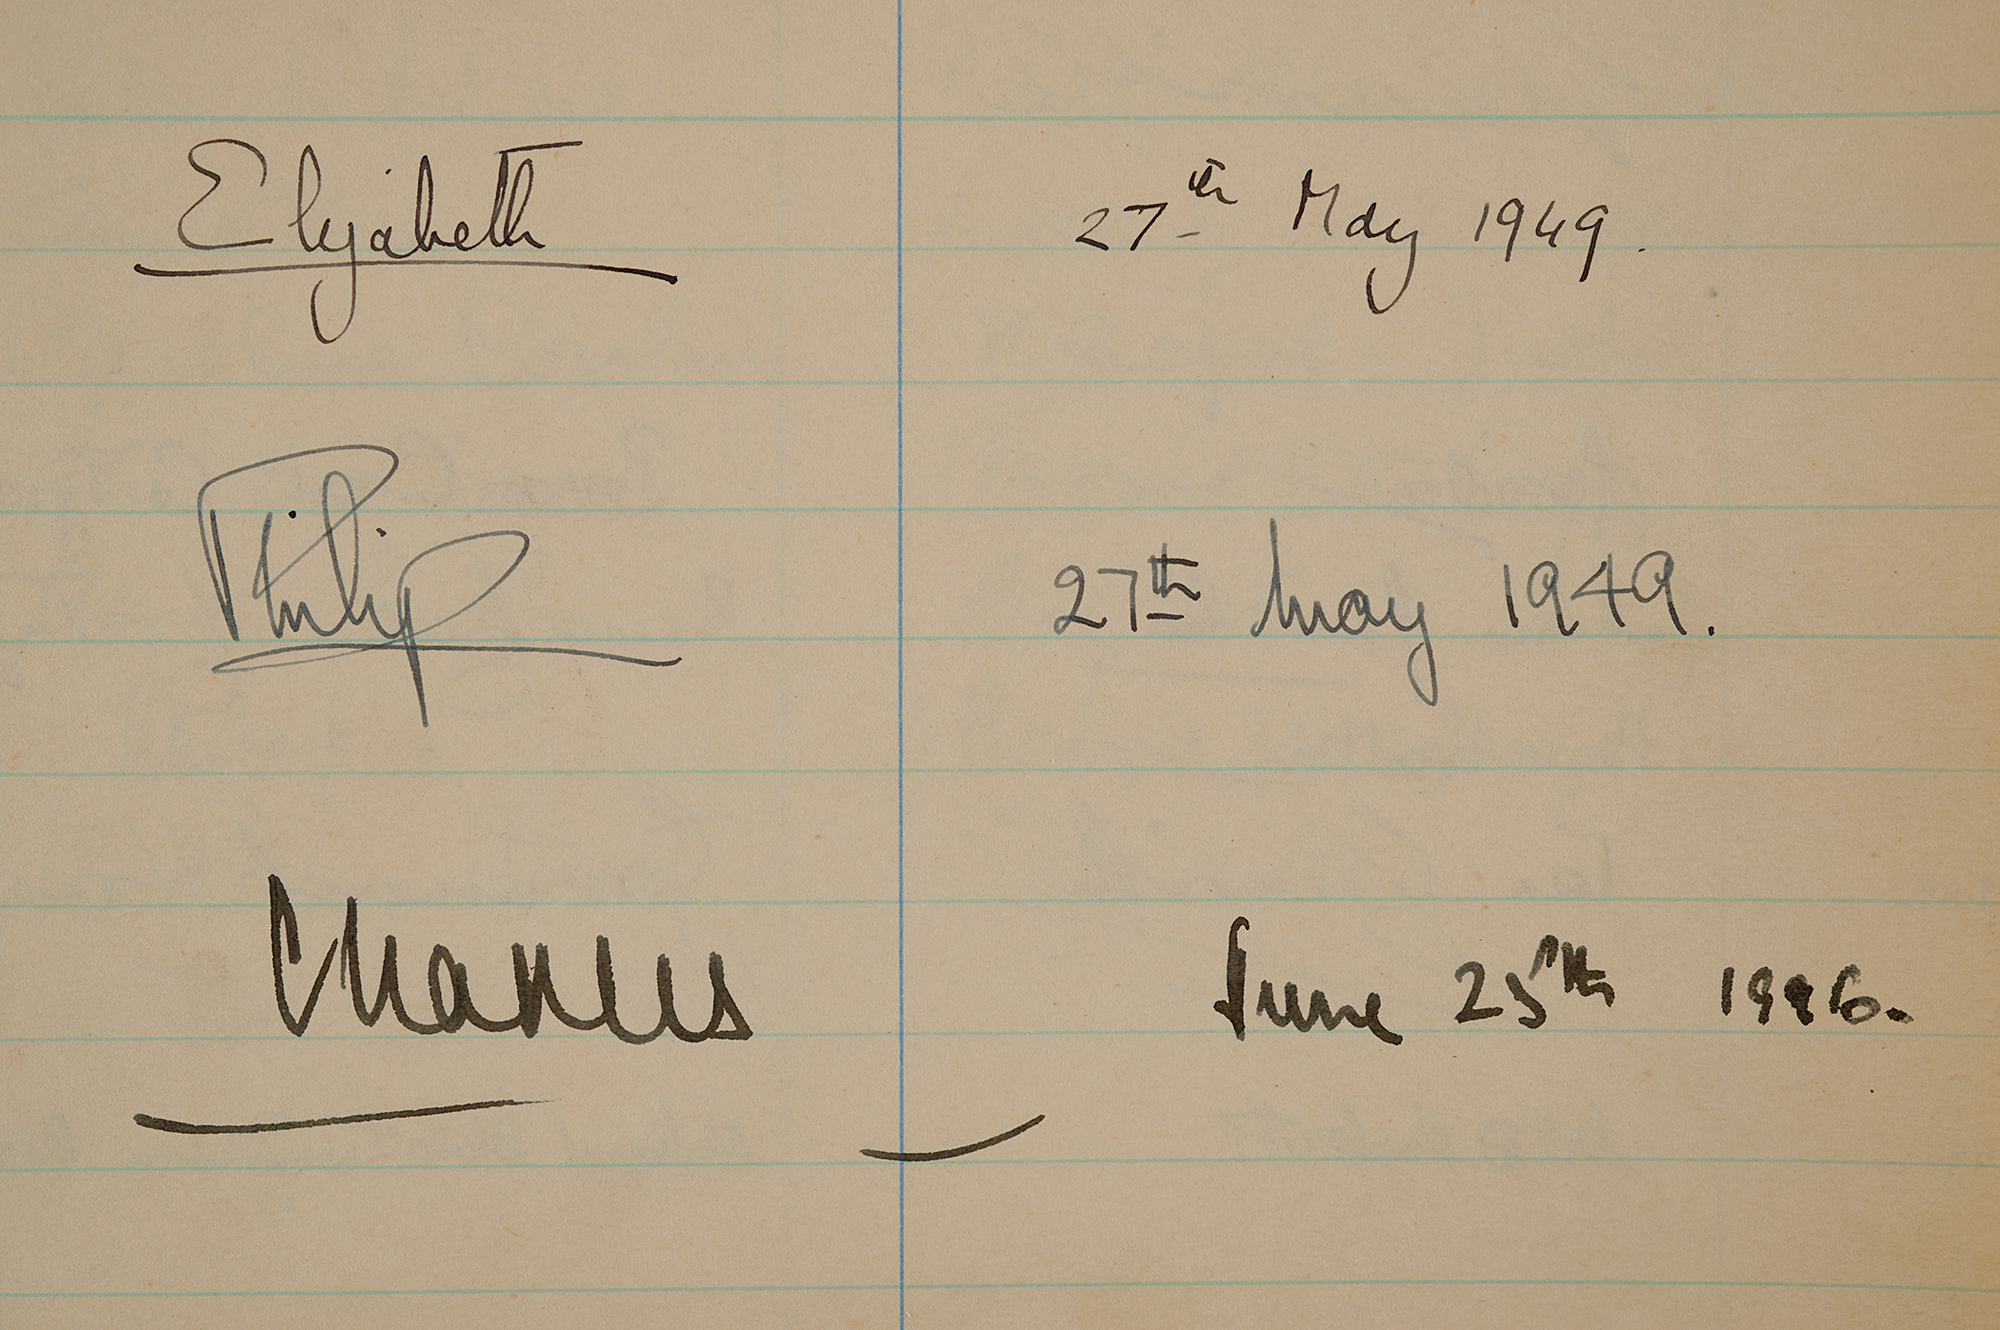 Elizabeth 27th May 1949.
Philip 27th May 1949.
Charles June 25th 1996.